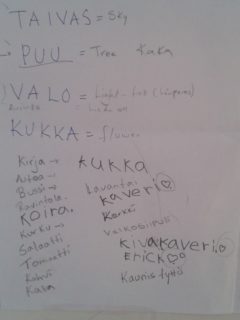 TAIVAS = Sky
PUU = Tree KAKA
VALO = Light
KUKKA = flower
Kirja →
Autoa →
Bussi →
Ravintola
KOIRA.
Kurku →
Salaatti
Tomaatti
Kahvi
Kala
KUKKA
Lavantai
KAVERI♡
Karkki
KIVAKAVERI♡
ERICK♡♡
Kaunis tyttö